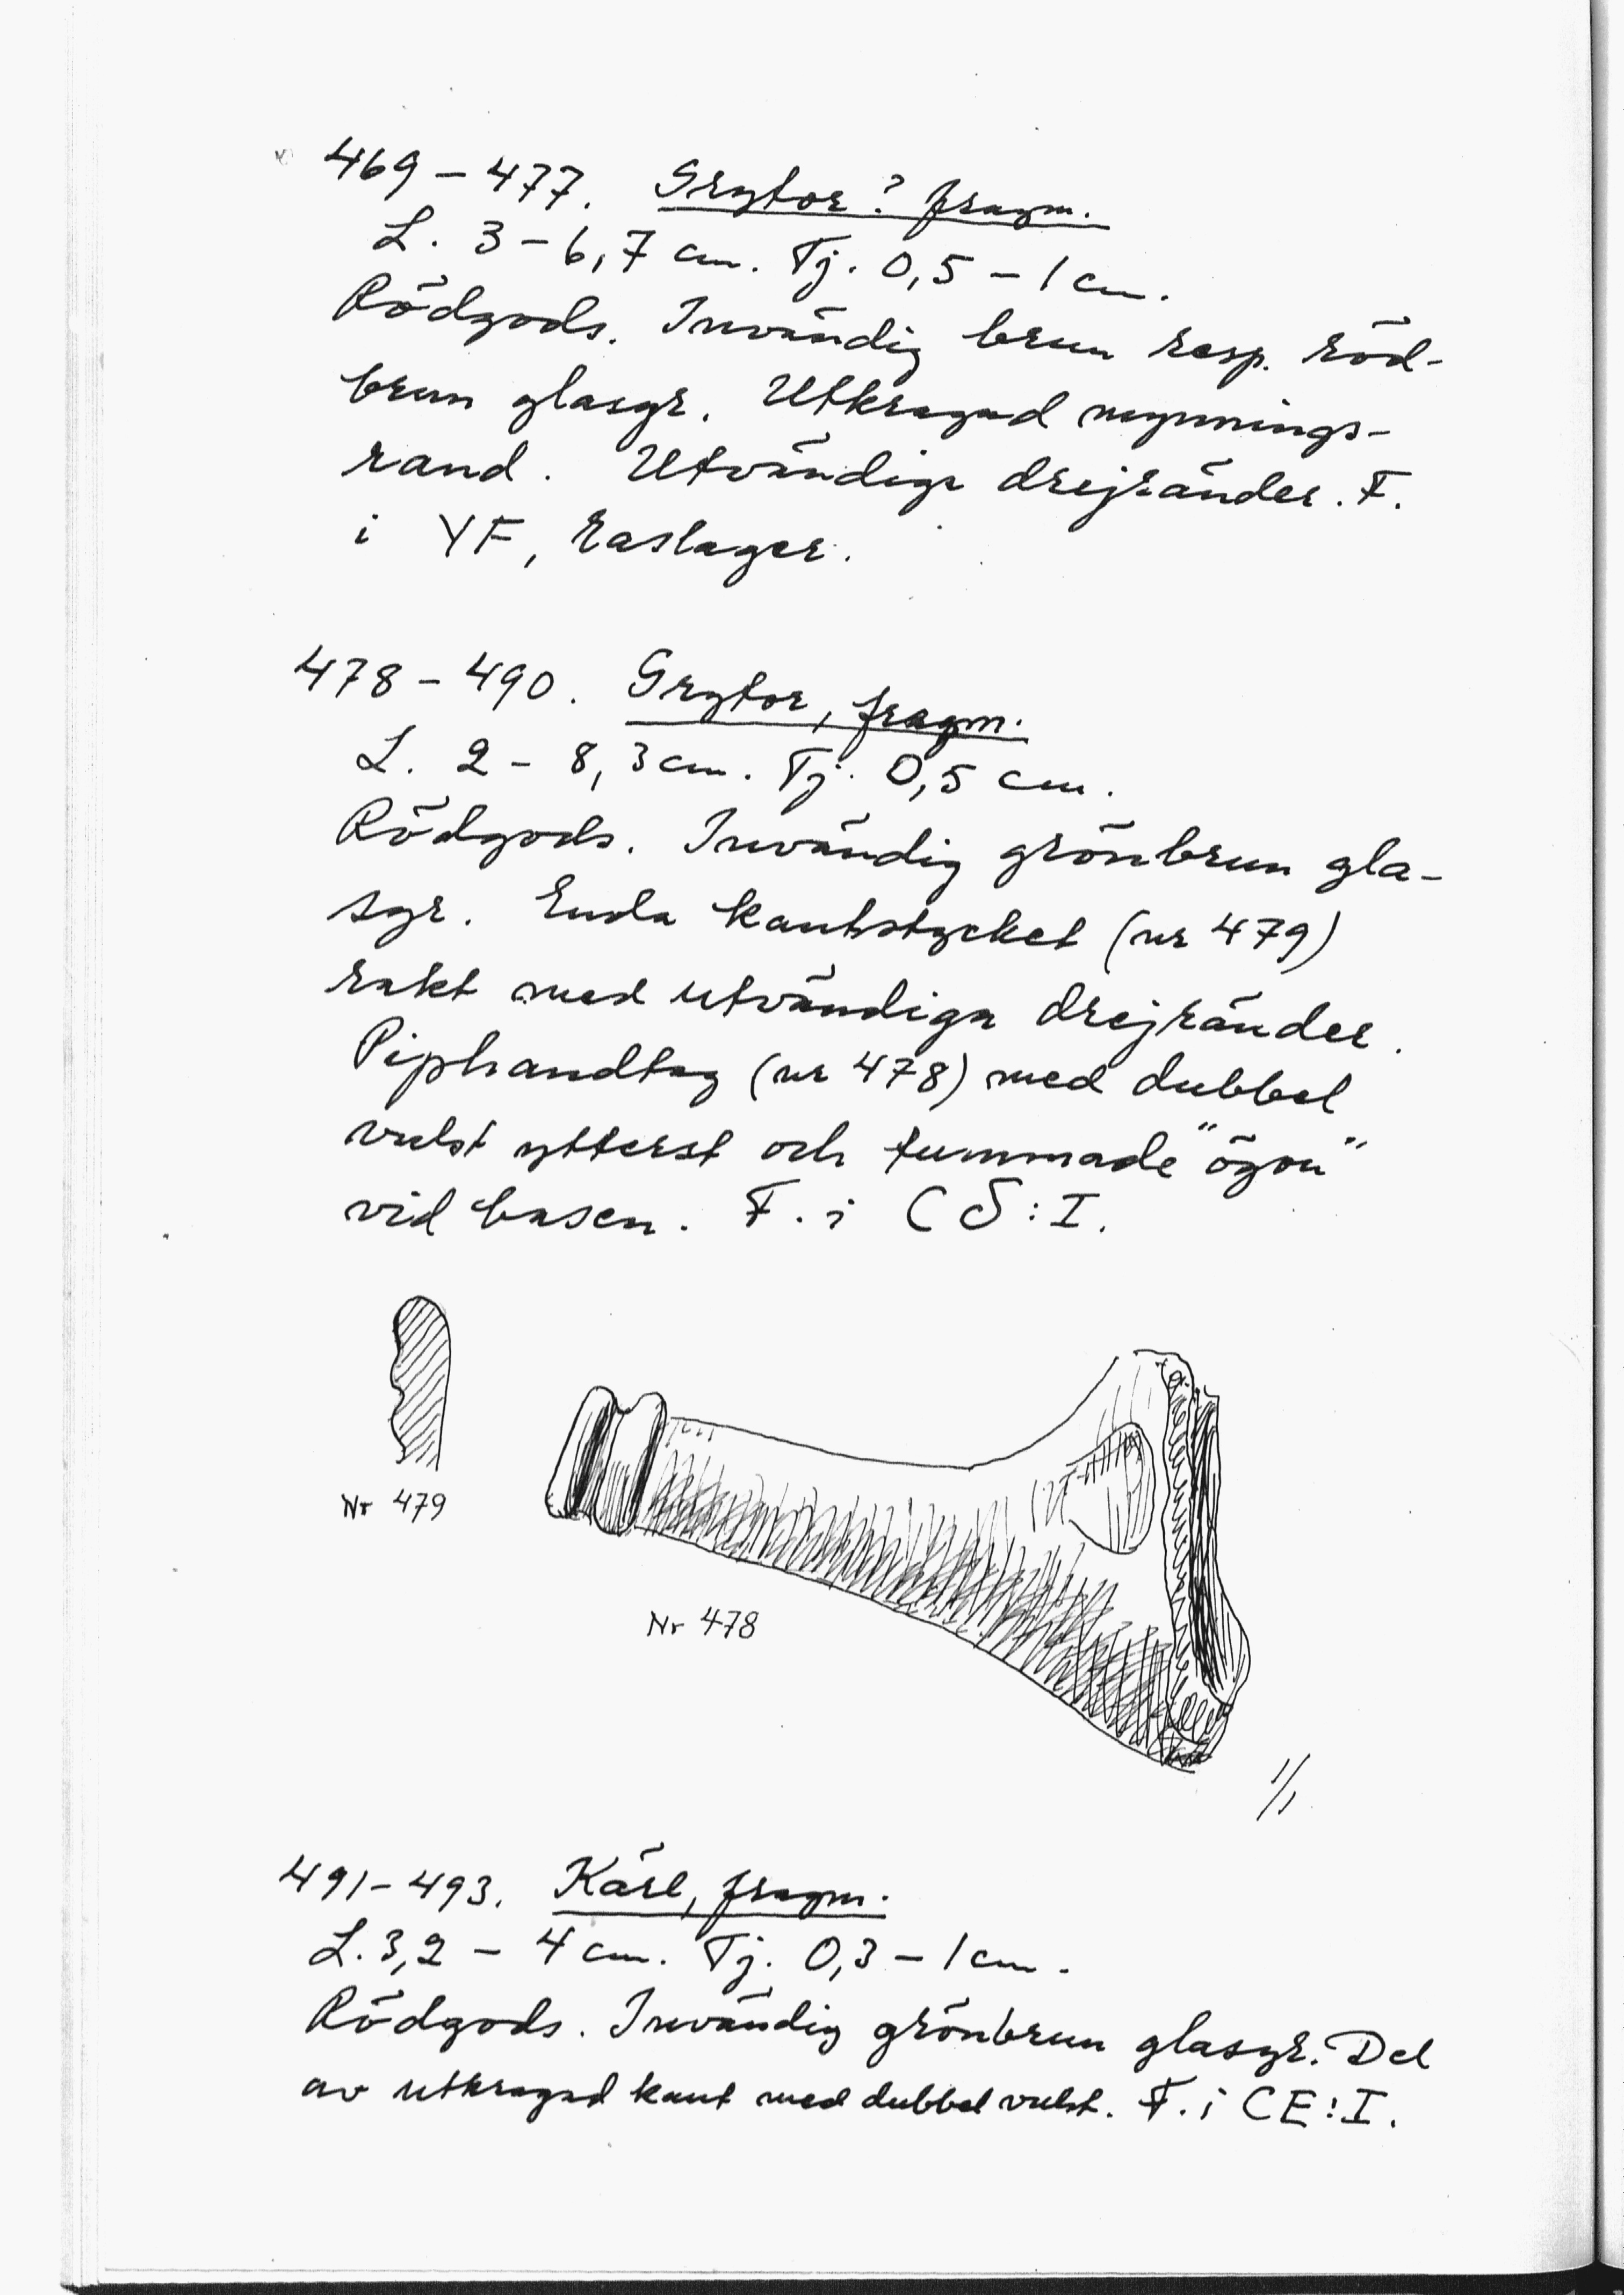 469 – 477. Grytor? fragm.
L. 3 – 6,7 cm. Tj. 0,5 – 1 cm.
Rödgods. Invändig brun resp. röd-
brun glasyr. Utkragad mynnings-
rand. Utvändiga drejränder. F.
i YF, raslager.
478 – 490. Grytor, fragm.
L. 2 – 8,3 cm. Tj. 0,5 cm.
Rödgods. Invändig grönbrun gla-
syr. Enda kantstycket (nr 479)
rakt med utvändiga drejränder.
Piphandtag (nr 478) med dubbel
vulst ytterst och tummade "ögon"
vid basen. F. i CS:I.
Nr 479
Nr 478
1/1
491 – 493. Kärl, fragm.
L. 3,2 – 4 cm. Tj. 0,3 – 1 cm.
Rödgods. Invändig grönbrun glasyr. Del
av utkragad kant med dubbel vulst. F. i CE:I.